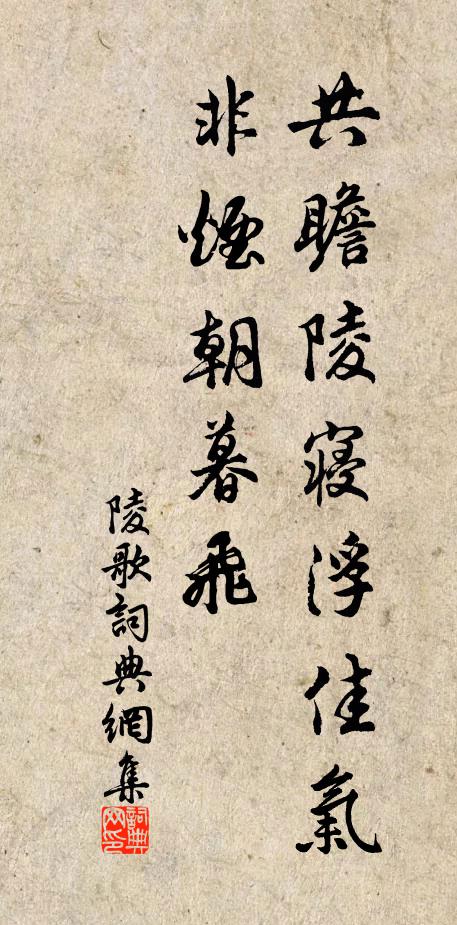 共瞻陵寝浮佳氣
非煙朝暮飛
陵歌詞典網集
詞典网印